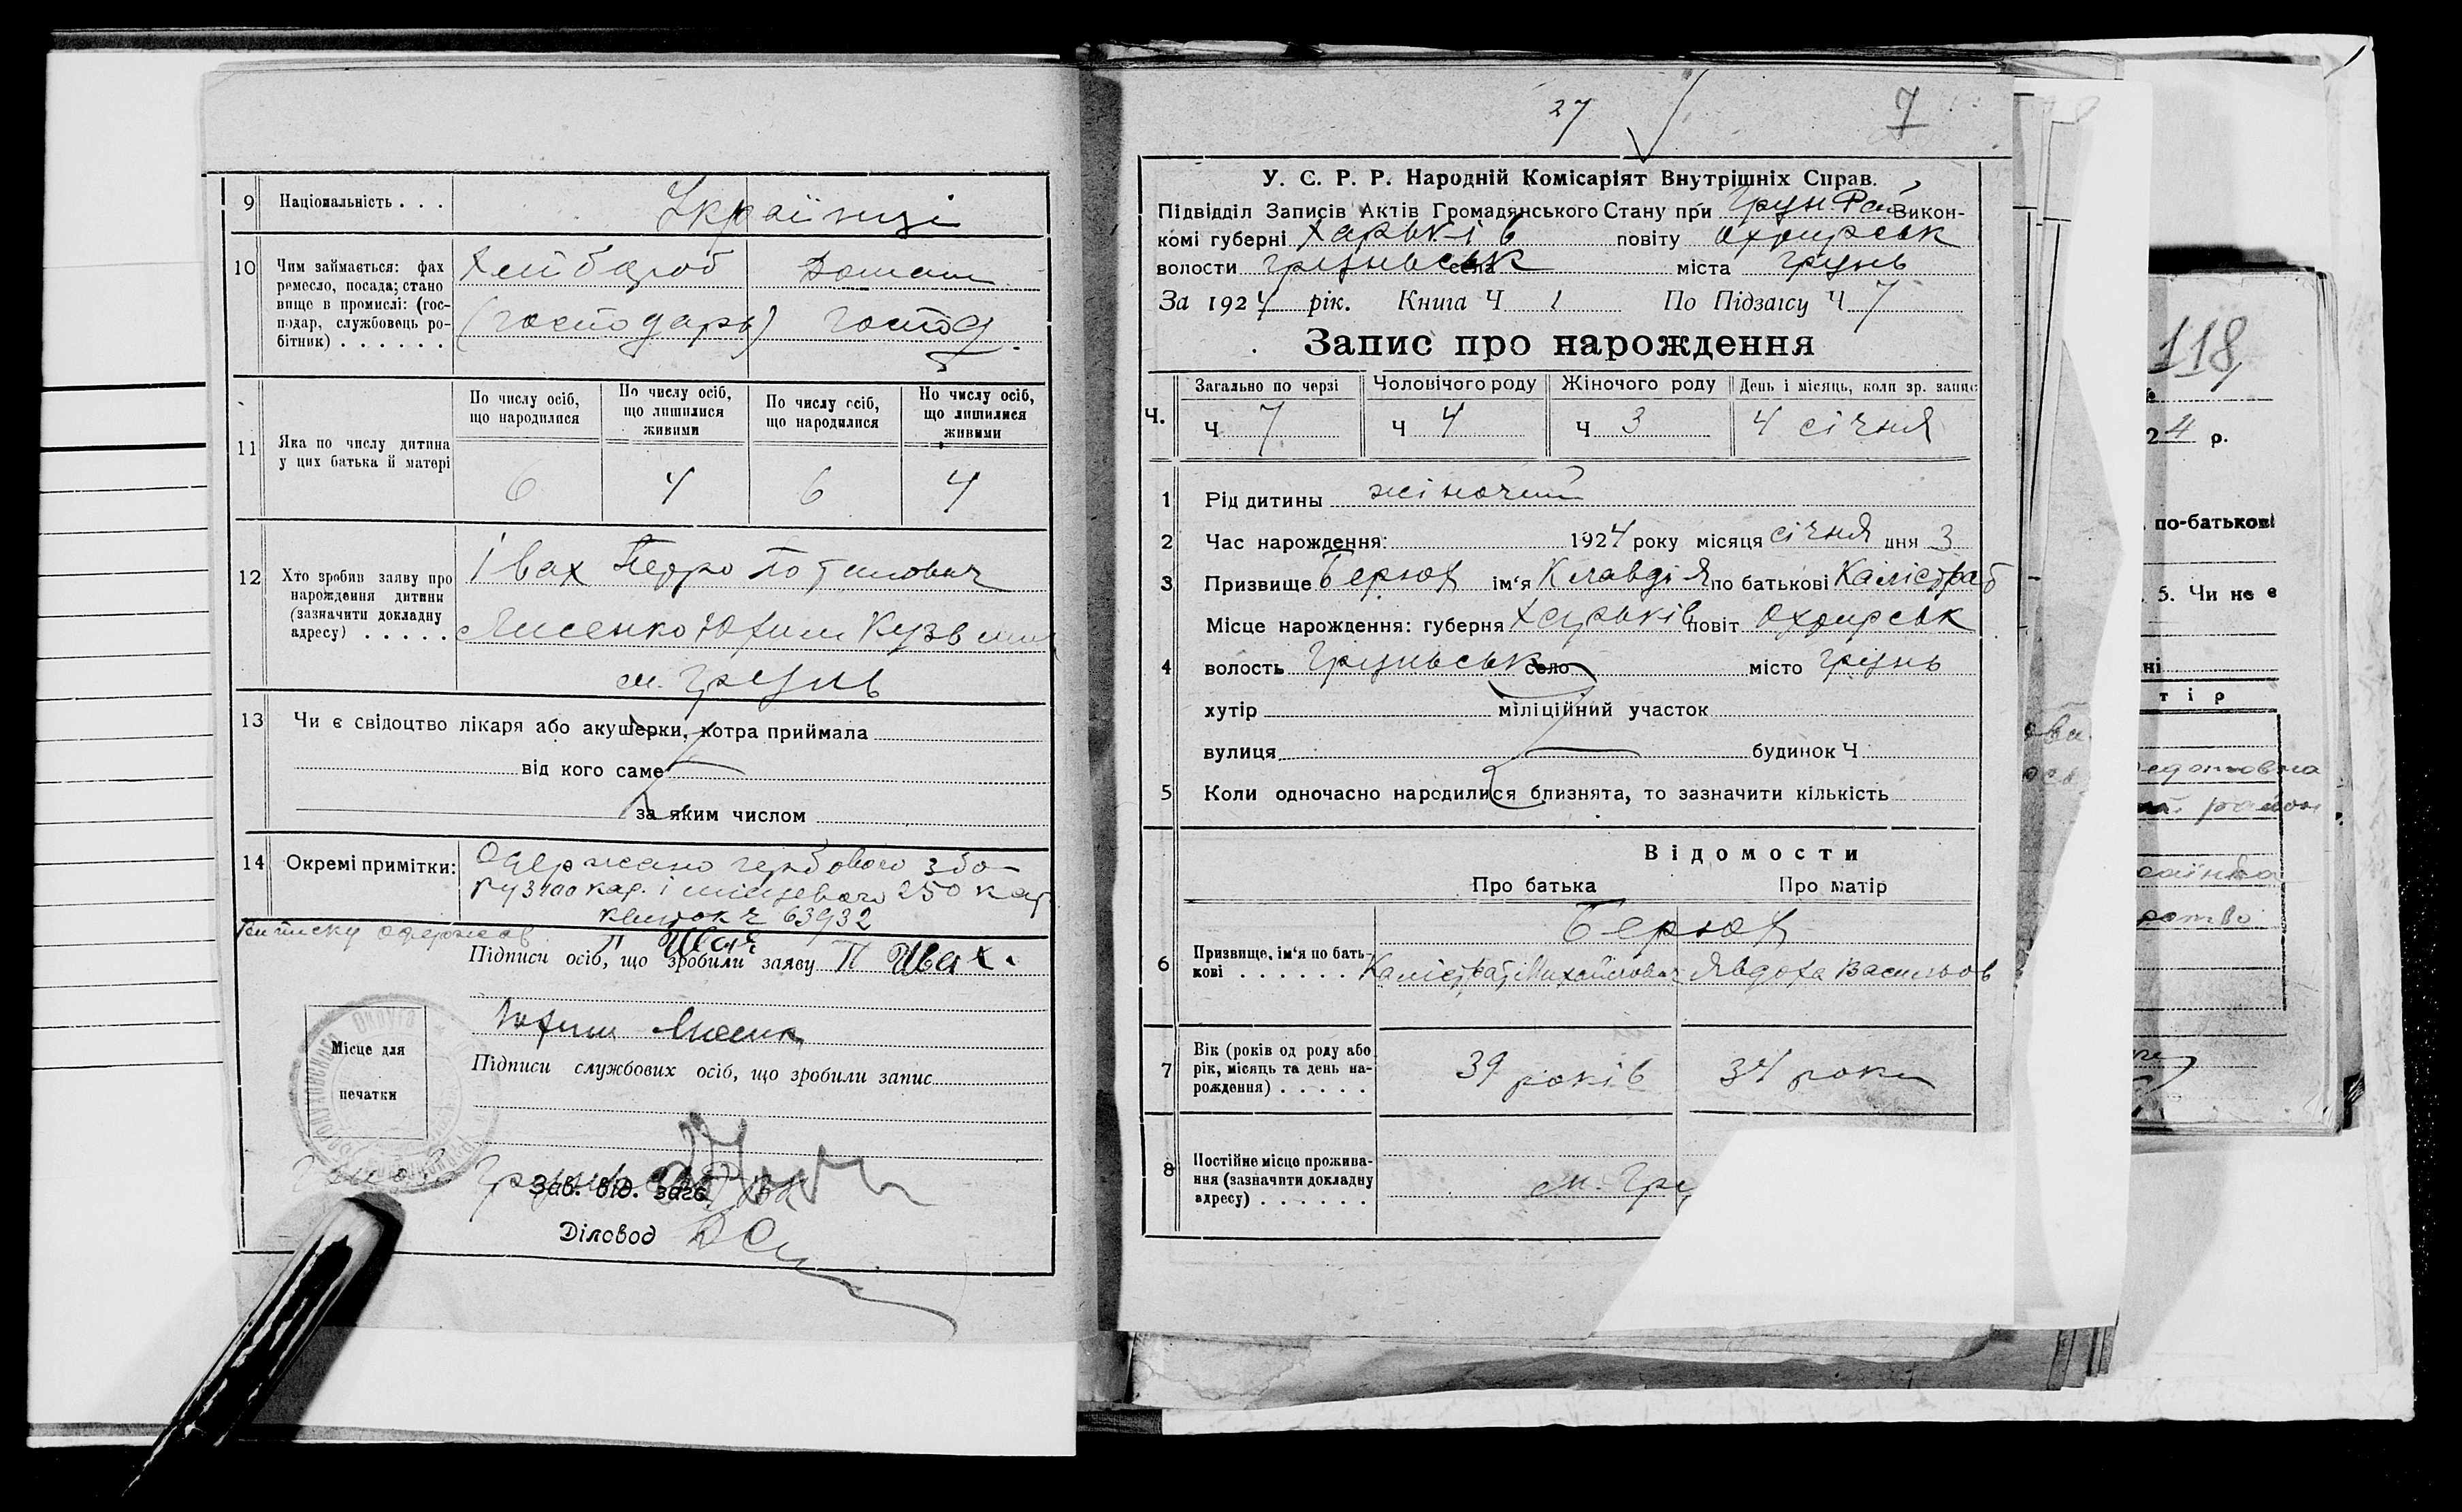 9 Національність . . .
Українці
10 Чим займається: фах
ремесло, посада; стано
вище в промислі: (гос-
подар, службовець ро-
бітник) . . . . . .
Хлібароб
(господарь)
Домаш
господ.
11 Яка по числу дитина
у цих батька й матері
По числу осіб,
що народилися
По числу осіб,
що лишилися
живими
По числу осіб,
що народилися
По числу осіб,
що лишилися
живими
6 4 6 4
12 Хто зробив заяву про
нарождення дитини
(зазначити докладну
адресу) . . . . .
Івах Педро Потапович
Лисенко Юхим Кузьмич
м. Грунь
13 Чи є свідоцтво лікаря або акушерки, котра приймала
від кого саме
за яким числом
14 Окремі примітки:
Одержано гербового збо-
ру 3100 кар. і місцевого 250 кар
квиток ч 63932
одержав
П Ивах
Підписи осіб, що зробили заяву П Ивах.
Юхим
Підписи службових осіб, що зробили запис
Місце для
печатки
Зав. від. загс.
Діловод
27
7
У. С. Р. Р. Народній Комісаріят Внутрішніх Справ.
Підвідділ Записів Актів Громадянського Стану при Грун Рай Викон-
комі губерні Харьків повіту Охтирськ
волости Груньськ села міста Грунь
За 1924 рік. Книга Ч 1 По Підзапсу Ч 7
Запис про нарождення
Ч.
Загально по черзі Чоловічого роду Жіночого роду День і місяць, коли зр. запис
Ч 7 Ч 4 Ч 3 4 січня
1 Рід дитины жіночий
2 Час нарождення: 1924 року місяця січня дня 3
3 Призвище Берюх ім'я Клавдія по батькові Калістрат
4 Місце нарождення: губерня Харьків повіт Охтирськ
волость Груньськ село місто Грунь
хутір міліційний участок
вулиця будинок Ч
5 Коли одночасно народилися близнята, то зазначити кількість
Відомости
Про батька Про матір
6 Призвище, ім'я по бать-
кові . . . . . .
Берюх
Калістрат Михайлович Явдоха Васильов
7 Вік (років од роду або
рік, місяць та день на-
рождення) . . . . .
39 років 34 роки
8 Постійне місце прожива-
ння (зазначити докладну
адресу) . . . . . .
м. Гру
118
24 р.
по-батькові
5. Чи не е
ні
т і р
район